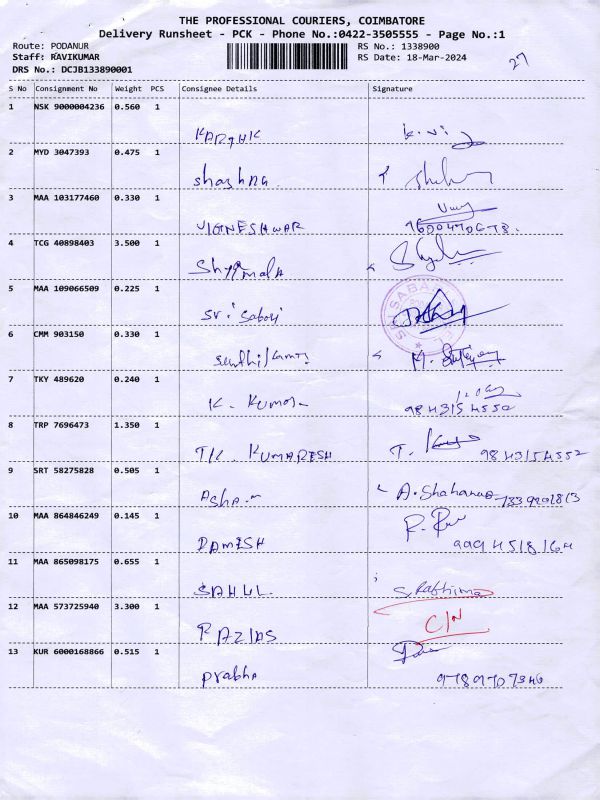 THE PROFESSIONAL COURIERS, COIMBATORE
Delivery Runsheet - PCK - Phone No.:0422-3505555 - Page No.:1
Route: PODANUR RS No.: 1338900
Staff: RAVIKUMAR RS Date: 18-Mar-2024 27
DRS No.: DCJB133890001
S No Consignment No Weight PCS Consignee Details Signature
1 NSK 9000004236 0.560 1
KARTHIK
2 MYD 3047393 0.475 1
3 MAA 103177460 0.330 1
VIGNESHWAR
4 TCG 40898403 3.500 1
Shyamala
5 MAA 109066509 0.225 1
Sri Sabari
6 CMM 903150 0.330 1
7 TKY 489620 0.240 1
K. Kumar 9843154552
8 TRP 7696473 1.350 1
T.K. KUMARESH 9843154552
9 SRT 58275828 0.505 1
10 MAA 864846249 0.145 1
DAMESH
11 MAA 865098175 0.655 1
12 MAA 573725940 3.300 1
C/N
13 KUR 6000168866 0.515 1
Prabha 9789707346